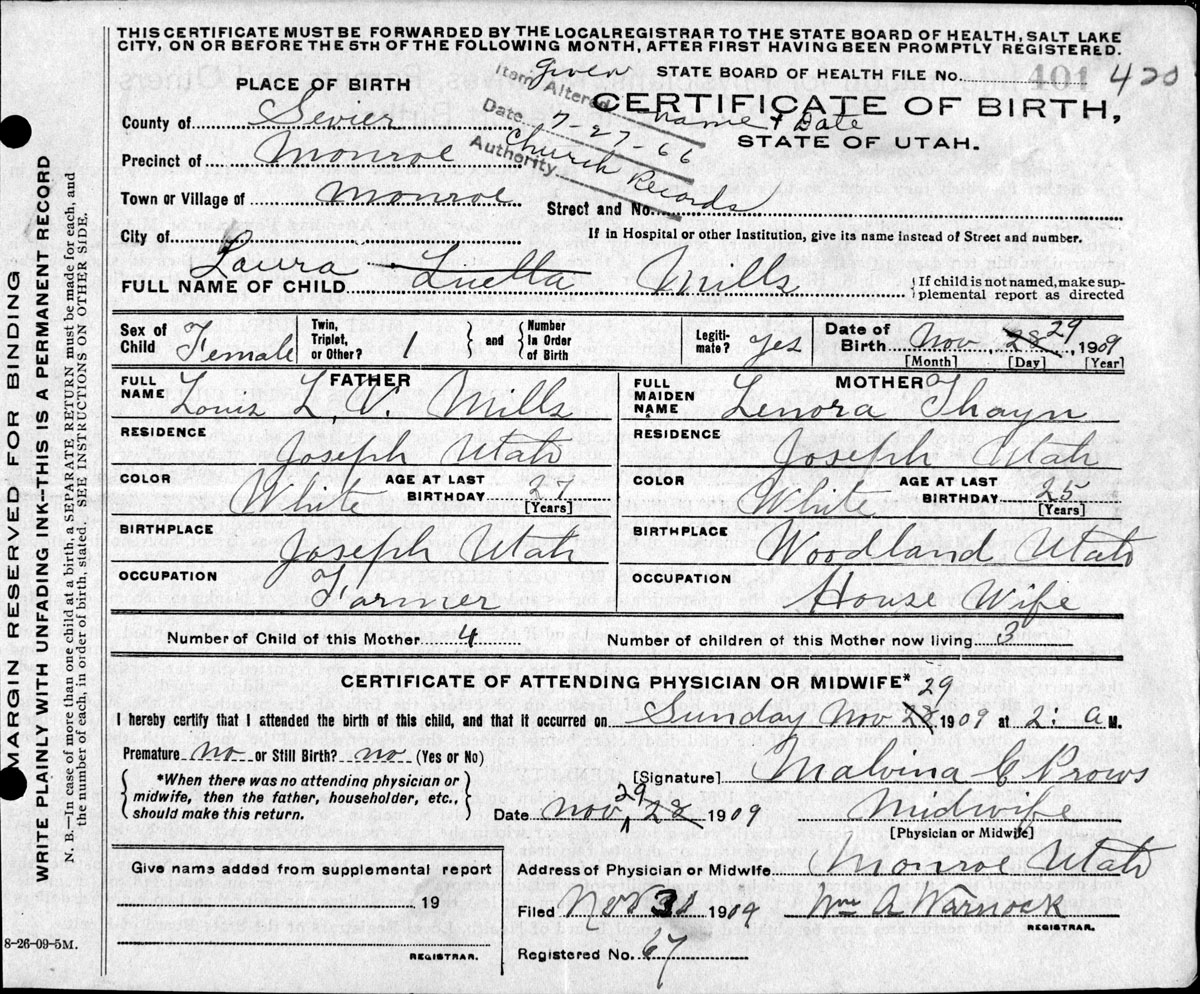 THIS CERTIFICATE MUST BE FORWARDED BY THE LOCALREGISTRAR TO THE STATE BOARD OF HEALTH, SALT LAKE
CITY, ON OR BEFORE THE 5TH OF THE FOLLOWING MONTH, AFTER FIRST HAVING BEEN PROMPTLY REGISTERED.
STATE BOARD OF HEALTH FILE NO. 401 420
PLACE OF BIRTH
CERTIFICATE OF BIRTH,
STATE OF UTAH.
Item Altered given name & Date
Date 7-27-66
Authority Church Records
County of Sevier
Precinct of Monroe
Town or Village of Monroe
Street and No.
City of
If in Hospital or other Institution, give its name instead of Street and number.
FULL NAME OF CHILD Laura Luella Mills
{If child is not named, make sup-
plemental report as directed
Sex of Child Female
Twin, Triplet, or Other? 1 } and { Number In Order of Birth
Legiti-mate? Yes
Date of Birth Nov. 28 29, 1909
[Month] [Day] [Year]
FATHER
FULL NAME Louis L. V. Mills
RESIDENCE Joseph Utah
COLOR White AGE AT LAST BIRTHDAY 27
[Years]
BIRTHPLACE Joseph Utah
OCCUPATION Farmer
MOTHER
FULL MAIDEN NAME Lenora Thayn
RESIDENCE Joseph Utah
COLOR White AGE AT LAST BIRTHDAY 25
[Years]
BIRTHPLACE Woodland Utah
OCCUPATION House Wife
Number of Child of this Mother 4
Number of children of this Mother now living 3
CERTIFICATE OF ATTENDING PHYSICIAN OR MIDWIFE*
I hereby certify that I attended the birth of this child, and that it occurred on Sunday Nov 28 29 1909 at 2: a M.
Premature no or Still Birth? no (Yes or No)
{*When there was no attending physician or
midwife, then the father, householder, etc.,
should make this return.}
[Signature] Malvina C Prows
Date Nov, 28 29 1909
Midwife
[Physician or Midwife]
Address of Physician or Midwife Monroe Utah
Give name added from supplemental report
19
REGISTRAR.
Filed Nov 30 1909 Wm A Warnock
REGISTRAR.
Registered No. 67
8-26-09-5M.
MARGIN RESERVED FOR BINDING
WRITE PLAINLY WITH UNFADING INK-THIS IS A PERMANENT RECORD
N. B.—In case of more than one child at a birth, a SEPARATE RETURN must be made for each, and
the number of each, in order of birth, stated. SEE INSTRUCTIONS ON OTHER SIDE.